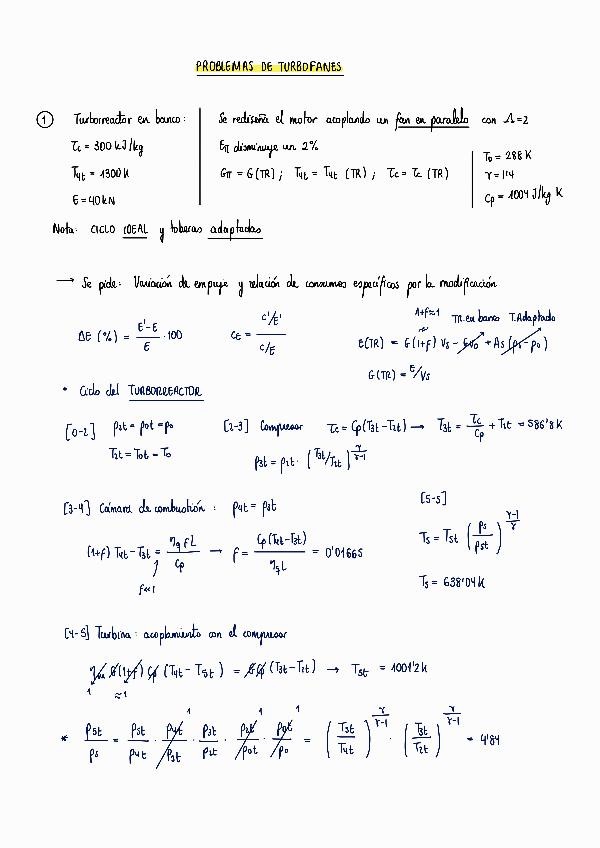 PROBLEMAS DE TURBOFANES
① Turborreactor en banco:
τc = 300 kJ/kg
T4t = 1300 K
E = 40 kN
Se rediseña el motor acoplando un fan en paralelo con Λ=2
Eπ disminuye un 2%
Gπ = G(TR) ; T4t = T4t (TR) ; τc = τc (TR)
T0 = 288 K
γ = 1'4
Cp = 1004 J/kg K
Nota: CICLO IDEAL y toberas adaptadas
→ Se pide: Variación de empuje y relación de consumos específicos por la modificación
ΔE (%) = E'-E / E · 100
CE = C'/E' / C/E
1+f≈1 TR en banco T. Adaptada
E(TR) = G(1+f) Vs - GV0 + As(ps - p0)
G(TR) = E/Vs
• Ciclo del TURBORREACTOR
[0-2] p2t = p0t = p0
T2t = T0t = T0
[2-3] Compresor τc = Cp(T3t-T2t) → T3t = τc/Cp + T2t = 586'8 K
p3t = p2t · (T3t/T2t)^γ/γ-1
[3-4] Cámara de combustión : p4t = p3t
(1+f) T4t - T3t = ηq f L / Cp → f = Cp(T4t-T3t) / ηq L = 0'01665
f<<1
[5-s]
Ts = T5t (ps/p5t)^γ-1/γ
Ts = 638'04 K
[4-5] Turbina : acoplamiento con el compresor
ηm G(1+f) Cp (T4t - T5t) = G Cp (T3t-T2t) → T5t = 1001'2 K
1 ≈1
1 1 1
* p5t/ps = p5t/p4t · p4t/p3t · p3t/p2t · p2t/p0t · p0t/p0 = (T5t/T4t)^γ/γ-1 · (T3t/T2t)^γ/γ-1 = 4'84